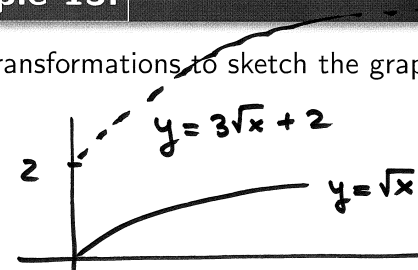 ansformations to sketch the grap
y = 3√x + 2
2
y = √x